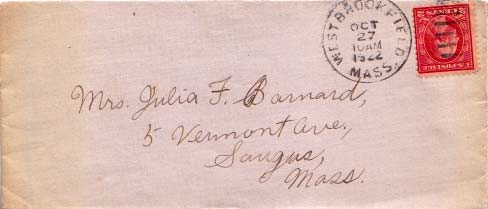 WEST BROOKFIELD
OCT
27
10AM
1922
MASS.
U.S. POSTAGE
Mrs. Julia F. Barnard,
5 Vermont Ave.,
Saugus,
Mass.